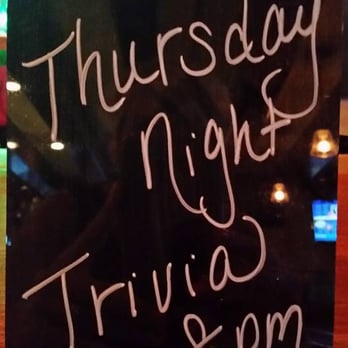 Thursday
Night
Trivia
8pm